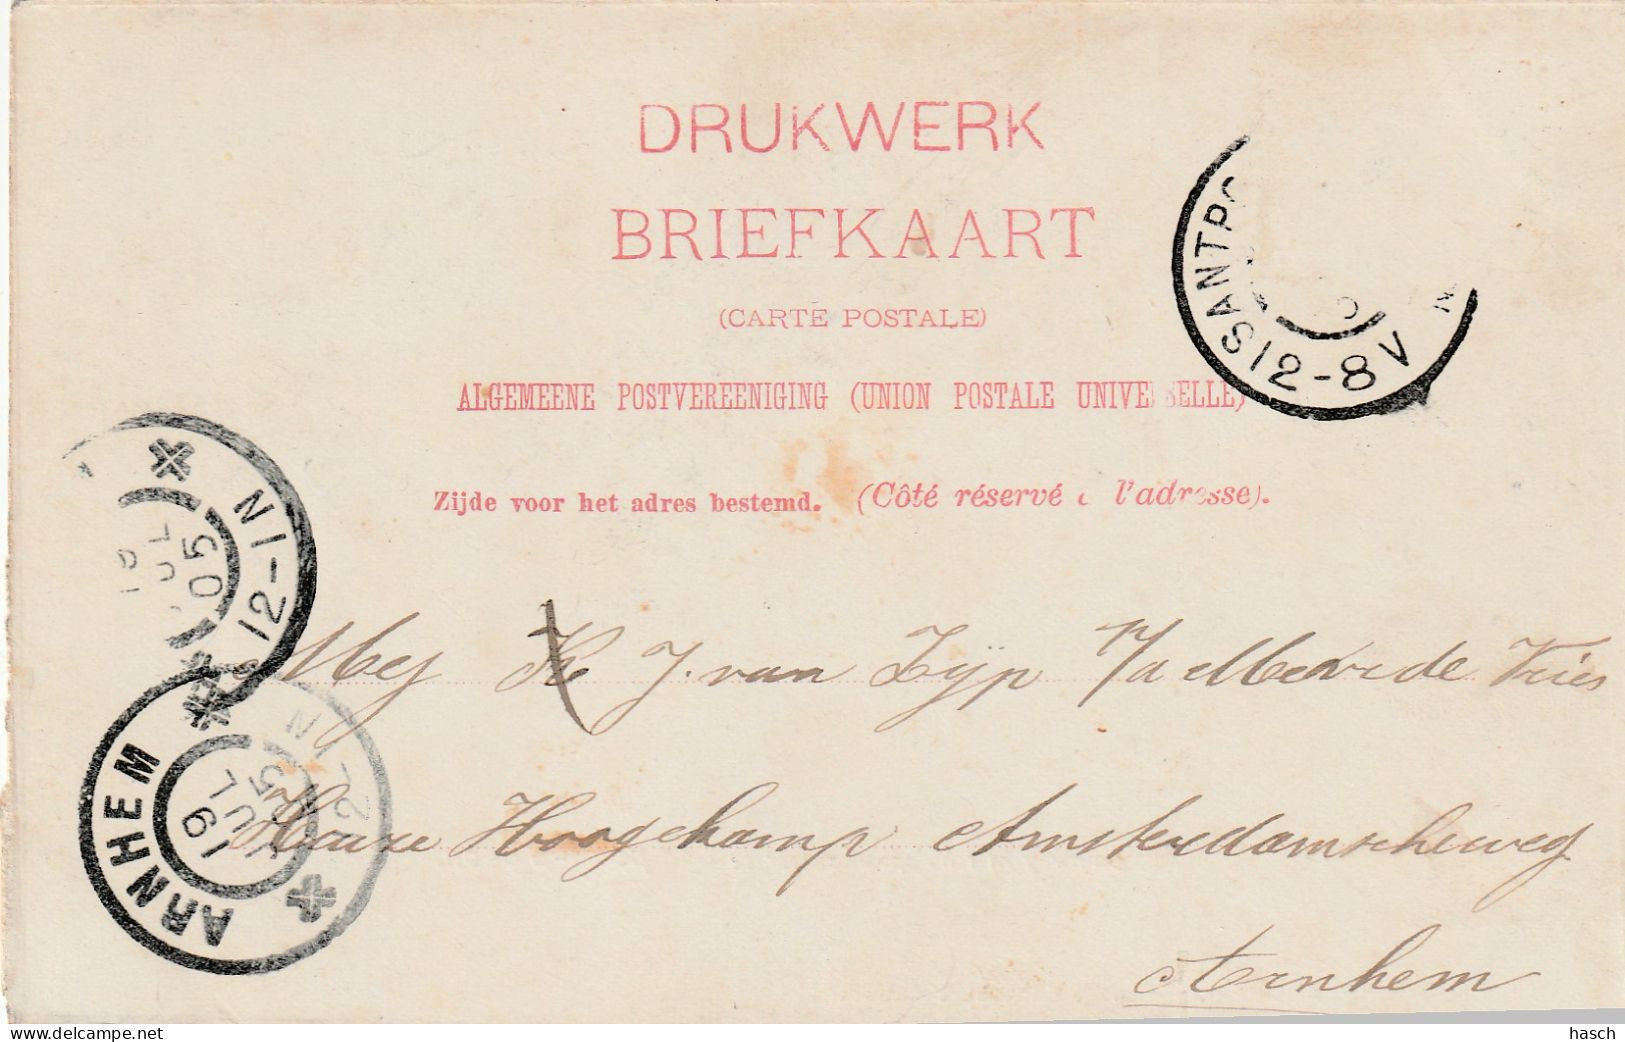 DRUKWERK
BRIEFKAART
(CARTE POSTALE)
ALGEMEENE POSTVEREENIGING (UNION POSTALE UNIVE SELLE)
Zijde voor het adres bestemd. (Côté réservé l'adresse).
SANTPO
12-8V
N
12-1N
JUL
05
ARNHEM
19
JUL
05
12-1N
Mej J. van Zijp p/a Mevr de Vries
Huize Hoogekamp Amsterdamscheweg
Arnhem
hasch